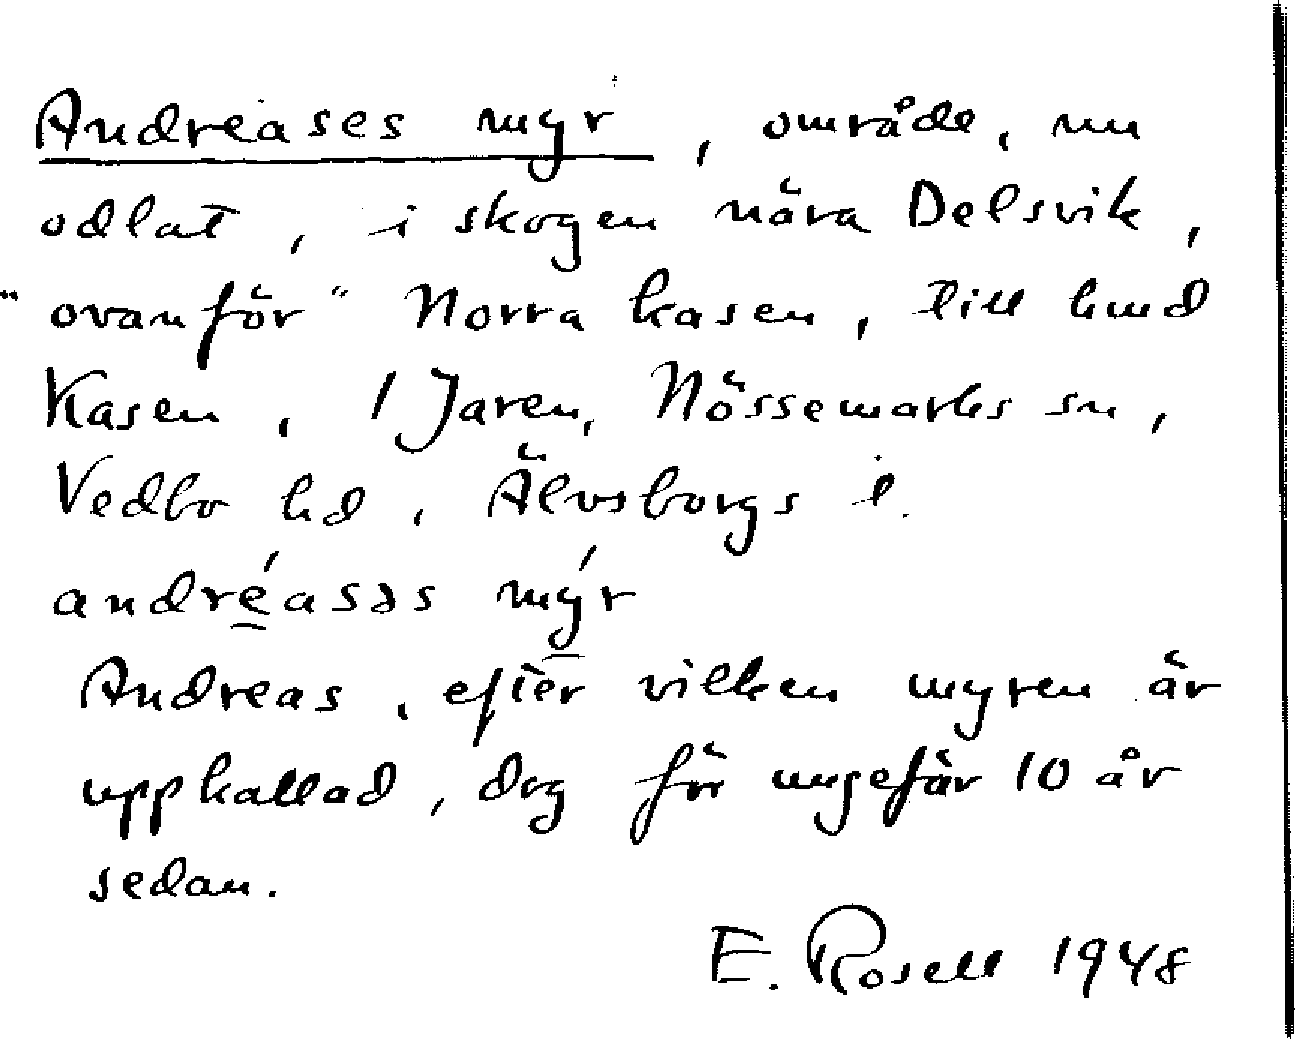 Andreases myr, område, nu
odlat, i skogen nära Delsvik,
"ovanför" Norra kasen, till hmd
Kasen, 1 Jaren, Nössemarks sn,
Vedbo hd, Älvsborgs l.
andréasəs mýr
Andreas, efter vilken myren är
uppkallad, dog för ungefär 10 år
sedan.
E. Rosell 1948